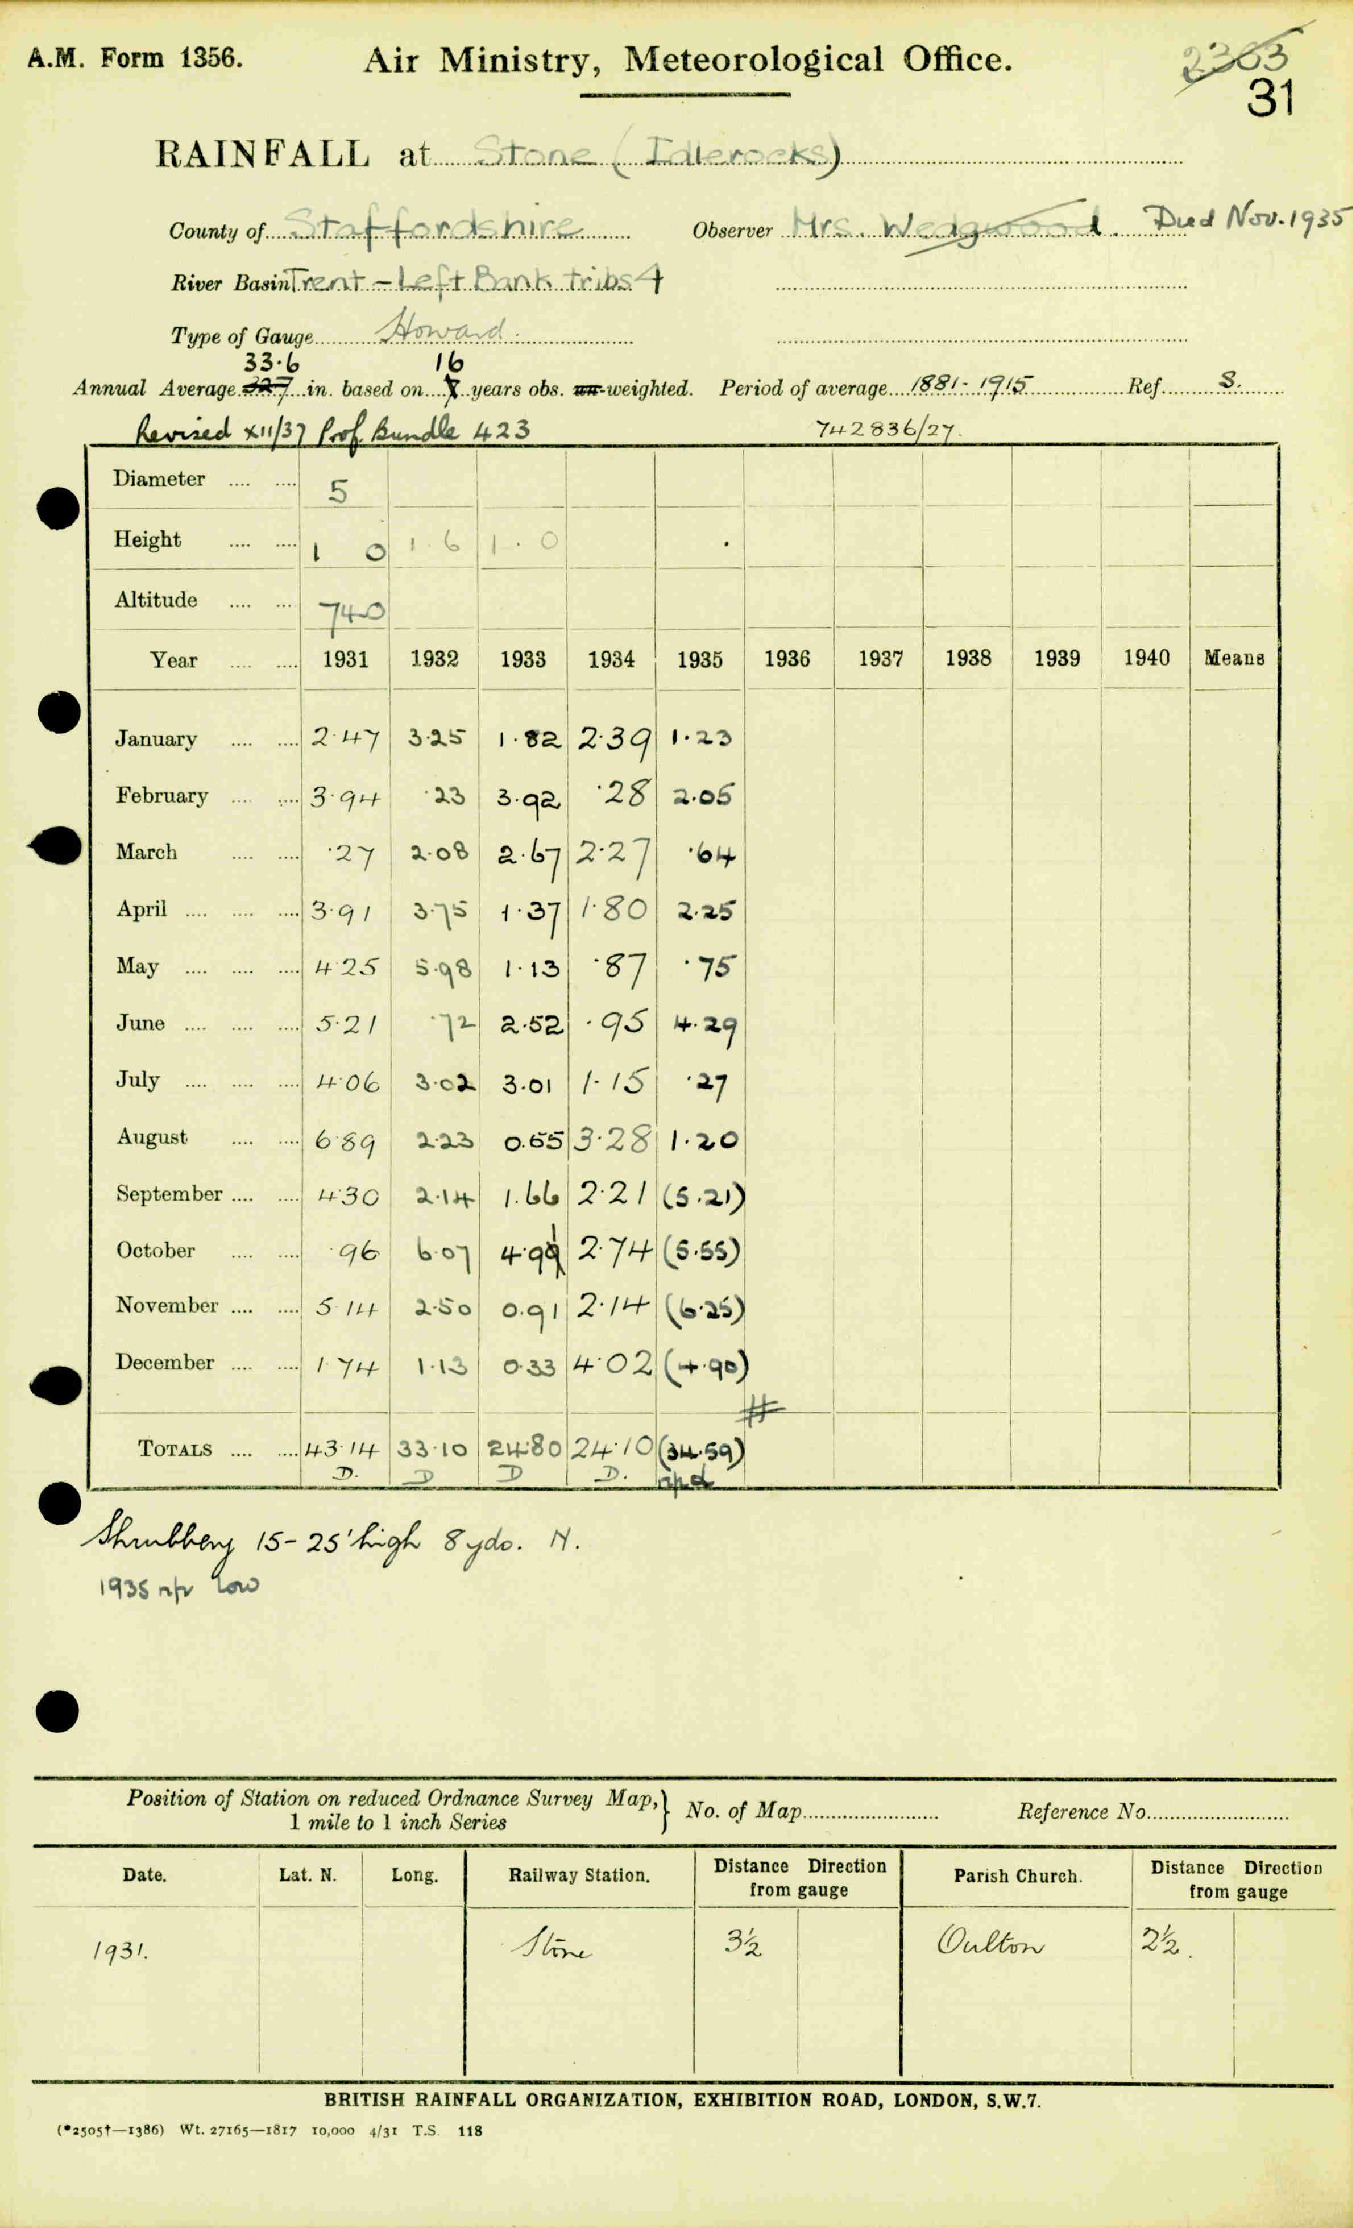 A.M. Form 1356. Air Ministry, Meteorological Office. 2363
31
RAINFALL at Stone (Idlerocks)
County of Staffordshire Observer Mrs. Wedgwood. Died Nov. 1935
River Basin Trent - Left Bank tribs 4
Type of Gauge Howard
33.6 16
Annual Average 32.7 in. based on 7 years obs. un-weighted. Period of average 1881-1915 Ref. S.
Revised XII/37 Prof. Bundle 423 742836/27
Diameter .... .... 5
Height .... .... 1 0 1.6 1.0
Altitude .... .... 740
Year .... .... 1931 1932 1933 1934 1935 1936 1937 1938 1939 1940 Means
January .... .... 2.47 3.25 1.82 2.39 1.23
February .... .... 3.94 .23 3.92 .28 2.05
March .... .... .27 2.08 2.67 2.27 .64
April .... .... .... 3.91 3.75 1.37 1.80 2.25
May .... .... .... 4.25 5.98 1.13 .87 .75
June .... .... .... 5.21 .72 2.52 .95 4.29
July .... .... .... 4.06 3.02 3.01 1.15 .27
August .... .... 6.89 2.23 0.65 3.28 1.20
September .... .... 4.30 2.14 1.66 2.21 (5.21)
October .... .... .96 6.07 4.99 2.74 (5.55)
November .... .... 5.14 2.50 0.91 2.14 (6.25)
December .... .... 1.74 1.13 0.33 4.02 (4.90)
#
TOTALS .... .... 43.14 33.10 24.80 24.10 (34.59)
D. D D D. npd
Shrubbery 15-25' high 8 yds. N.
1935 npr low
Position of Station on reduced Ordnance Survey Map, } No. of Map Reference No.
1 mile to 1 inch Series
Date. Lat. N. Long. Railway Station. Distance Direction from gauge Parish Church. Distance Direction from gauge
1931. Stone 3½ Oulton 2½.
BRITISH RAINFALL ORGANIZATION, EXHIBITION ROAD, LONDON, S.W.7.
(*2505†—1386) Wt. 27165—1817 10,000 4/31 T.S. 118